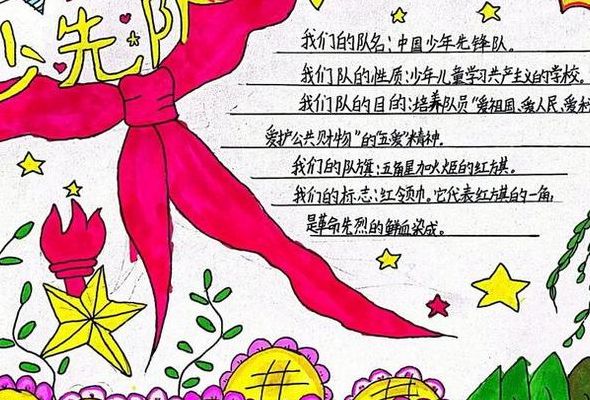 少先队
我们的队名:中国少年先锋队。
我们队的性质:少年儿童学习共产主义的学校。
我们队的目的:培养队员"爱祖国、爱人民、爱
爱护公共财物"的"五爱"精神。
我们的队旗:五角星加火炬的红旗。
我们的标志:红领巾。它代表红旗的一角,
是革命先烈的鲜血染成。